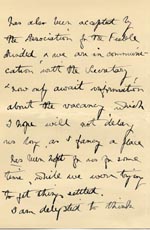 has also been accepted by
the Association of the Feeble
Minded & we are in communi-
cation with the Secretary
& now only await information
about the vacancy which
I hope will not delay
us long as I fancy a place
has been kept for us for some
time, while we were trying
to get things settled.
I am delighted to think